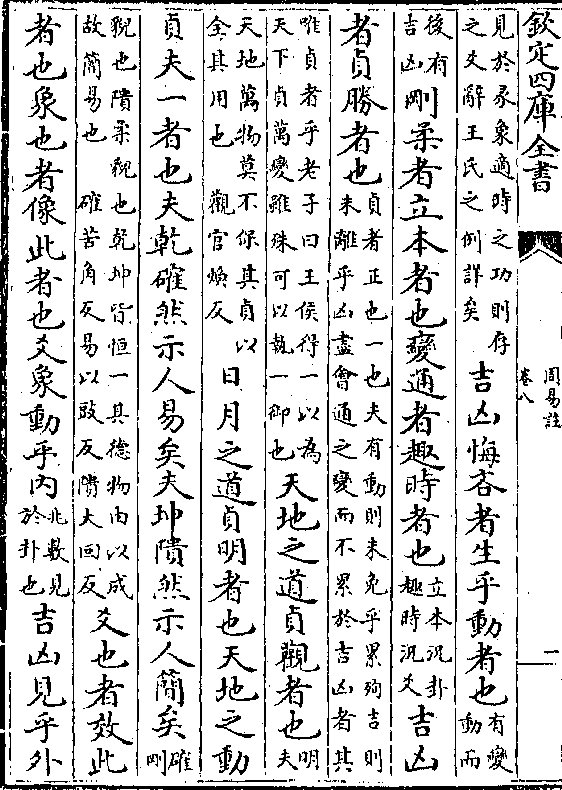 欽定四庫全書
周易註
卷八
一
見於彖象適時之功則存
之爻辭王氏之例詳矣
吉凶悔吝者生乎動者也
有變
動而
後有
吉凶
剛柔者立本者也變通者趣時者也
立本況卦
趣時況爻
吉凶
者貞勝者也
貞者正也一也夫有動則未免乎累殉吉則
未離乎凶盡會通之變而不累於吉凶者其
唯貞者乎老子曰王侯得一以為
天下貞萬變雖殊可以執一御也
天地之道貞觀者也
明
夫
天地萬物莫不保其貞以
全其用也 觀官煥反
日月之道貞明者也天地之動
貞夫一者也夫乾確然示人易矣夫坤隤然示人簡矣
確
剛
貌也隤柔貌也乾坤皆恒一其德物由以成
故簡易也 確苦角反易以豉反隤大回反
爻也者效此
者也象也者像此者也爻象動乎內
兆數見
於卦也
吉凶見乎外